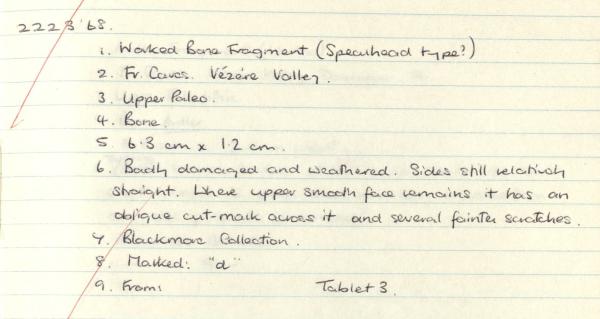 2223'68.
1. Worked Bone Fragment (Spearhead type?)
2. Fr. Caves. Vézère Valley.
3. Upper Paleo.
4. Bone.
5. 6.3 cm x 1.2 cm.
6. Badly damaged and weathered. Sides still relatively
straight. Where upper smooth face remains it has an
oblique cut-mark across it and several fainter scratches.
7. Blackmore Collection.
8. Marked: "d"
9. From: Tablet 3.